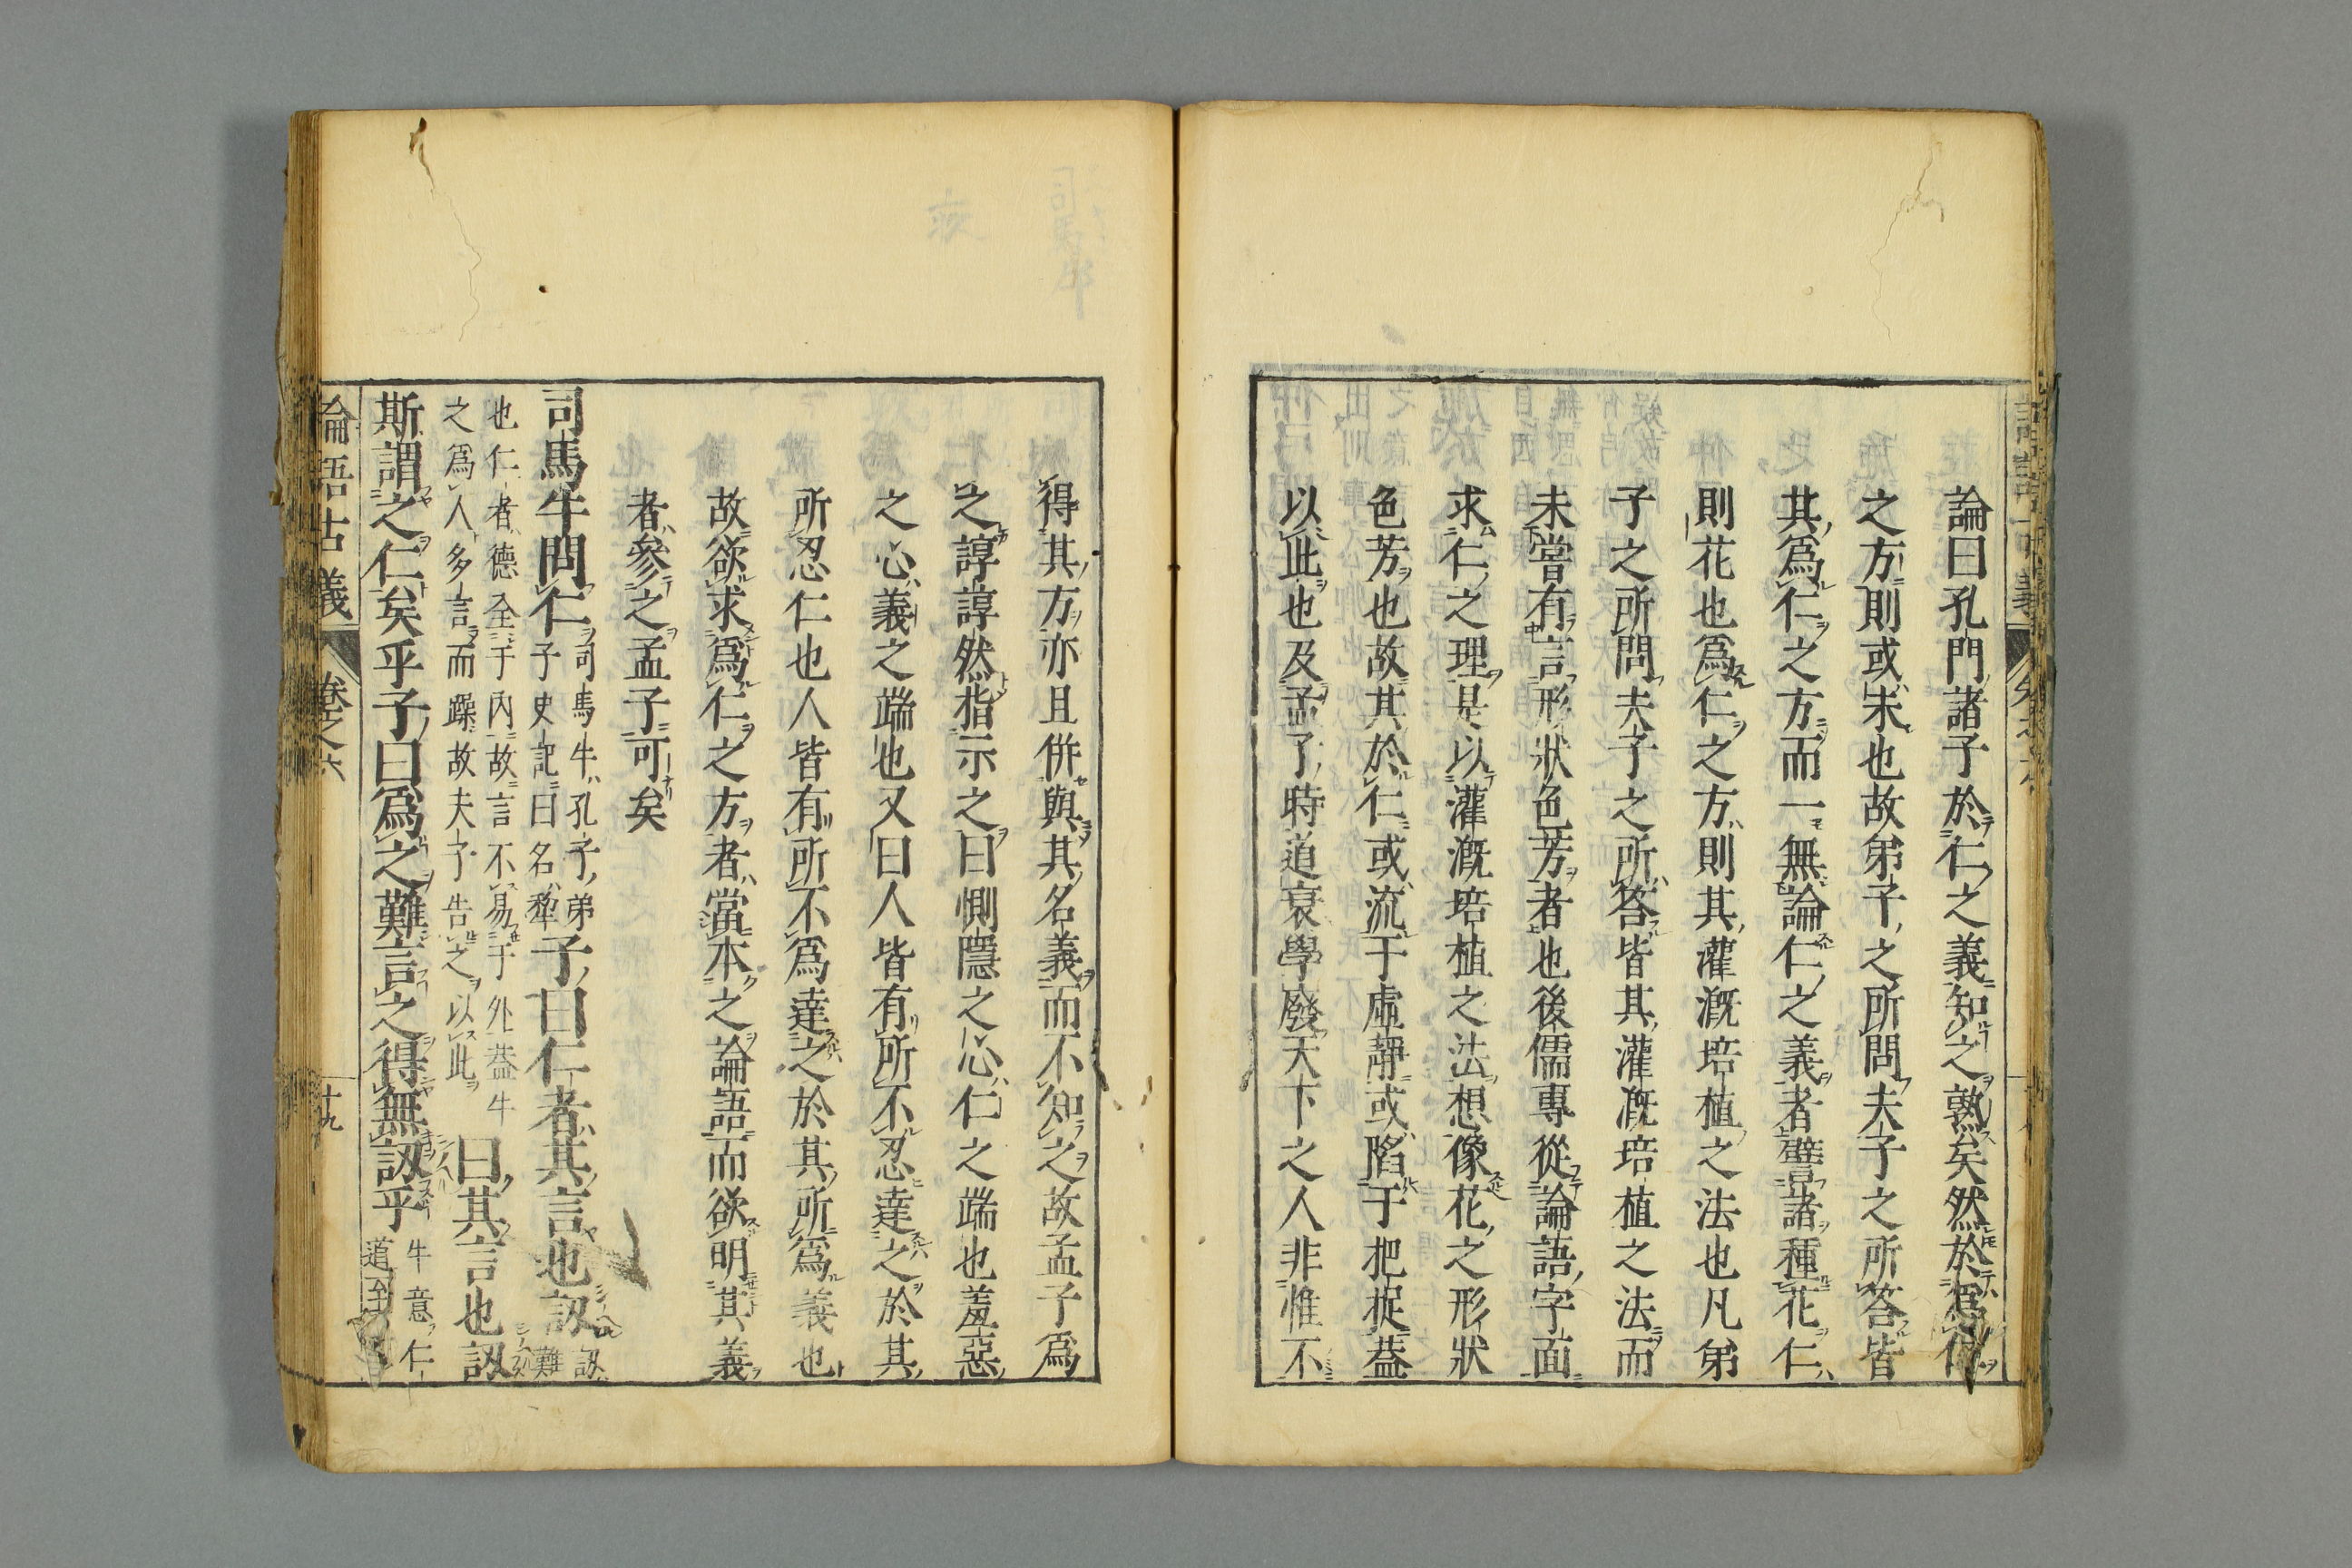 論曰孔門諸子於仁之義知之熟矣然於爲仁
之方則或未也故弟子之所問夫子之所答皆
其爲仁之方而一無論仁之義者譬諸種花仁
則花也爲仁之方則其灌漑培植之法也凡弟
子之所問夫子之所答皆其灌漑培植之法而
未嘗有言形狀色芳者也後儒專從論語字面
求仁之理是以灌漑培植之法想像花之形狀
色芳也故其於仁或流于虛靜或陷于把捉蓋
以此也及孟子時道衰學廢天下之人非惟不
得其方亦且併與其名義而不知之故孟子爲
之諄諄然指示之曰惻隱之心仁之端也羞惡
之心義之端也又曰人皆有所不忍達之於其
所忍仁也人皆有所不爲達之於其所爲義也
故欲求爲仁之方者當本之論語而欲明其義
者參之孟子可矣
司馬牛問仁
司馬牛孔子弟
子史記曰名犂
子曰仁者其言也訒
訒
難
也仁者德全于內故言不易于外蓋牛
之爲人多言而躁故夫子告之以此
曰其言也訒
斯謂之仁矣乎子曰爲之難言之得無訒乎
牛意仁
道至
論語古義 卷之六 十九